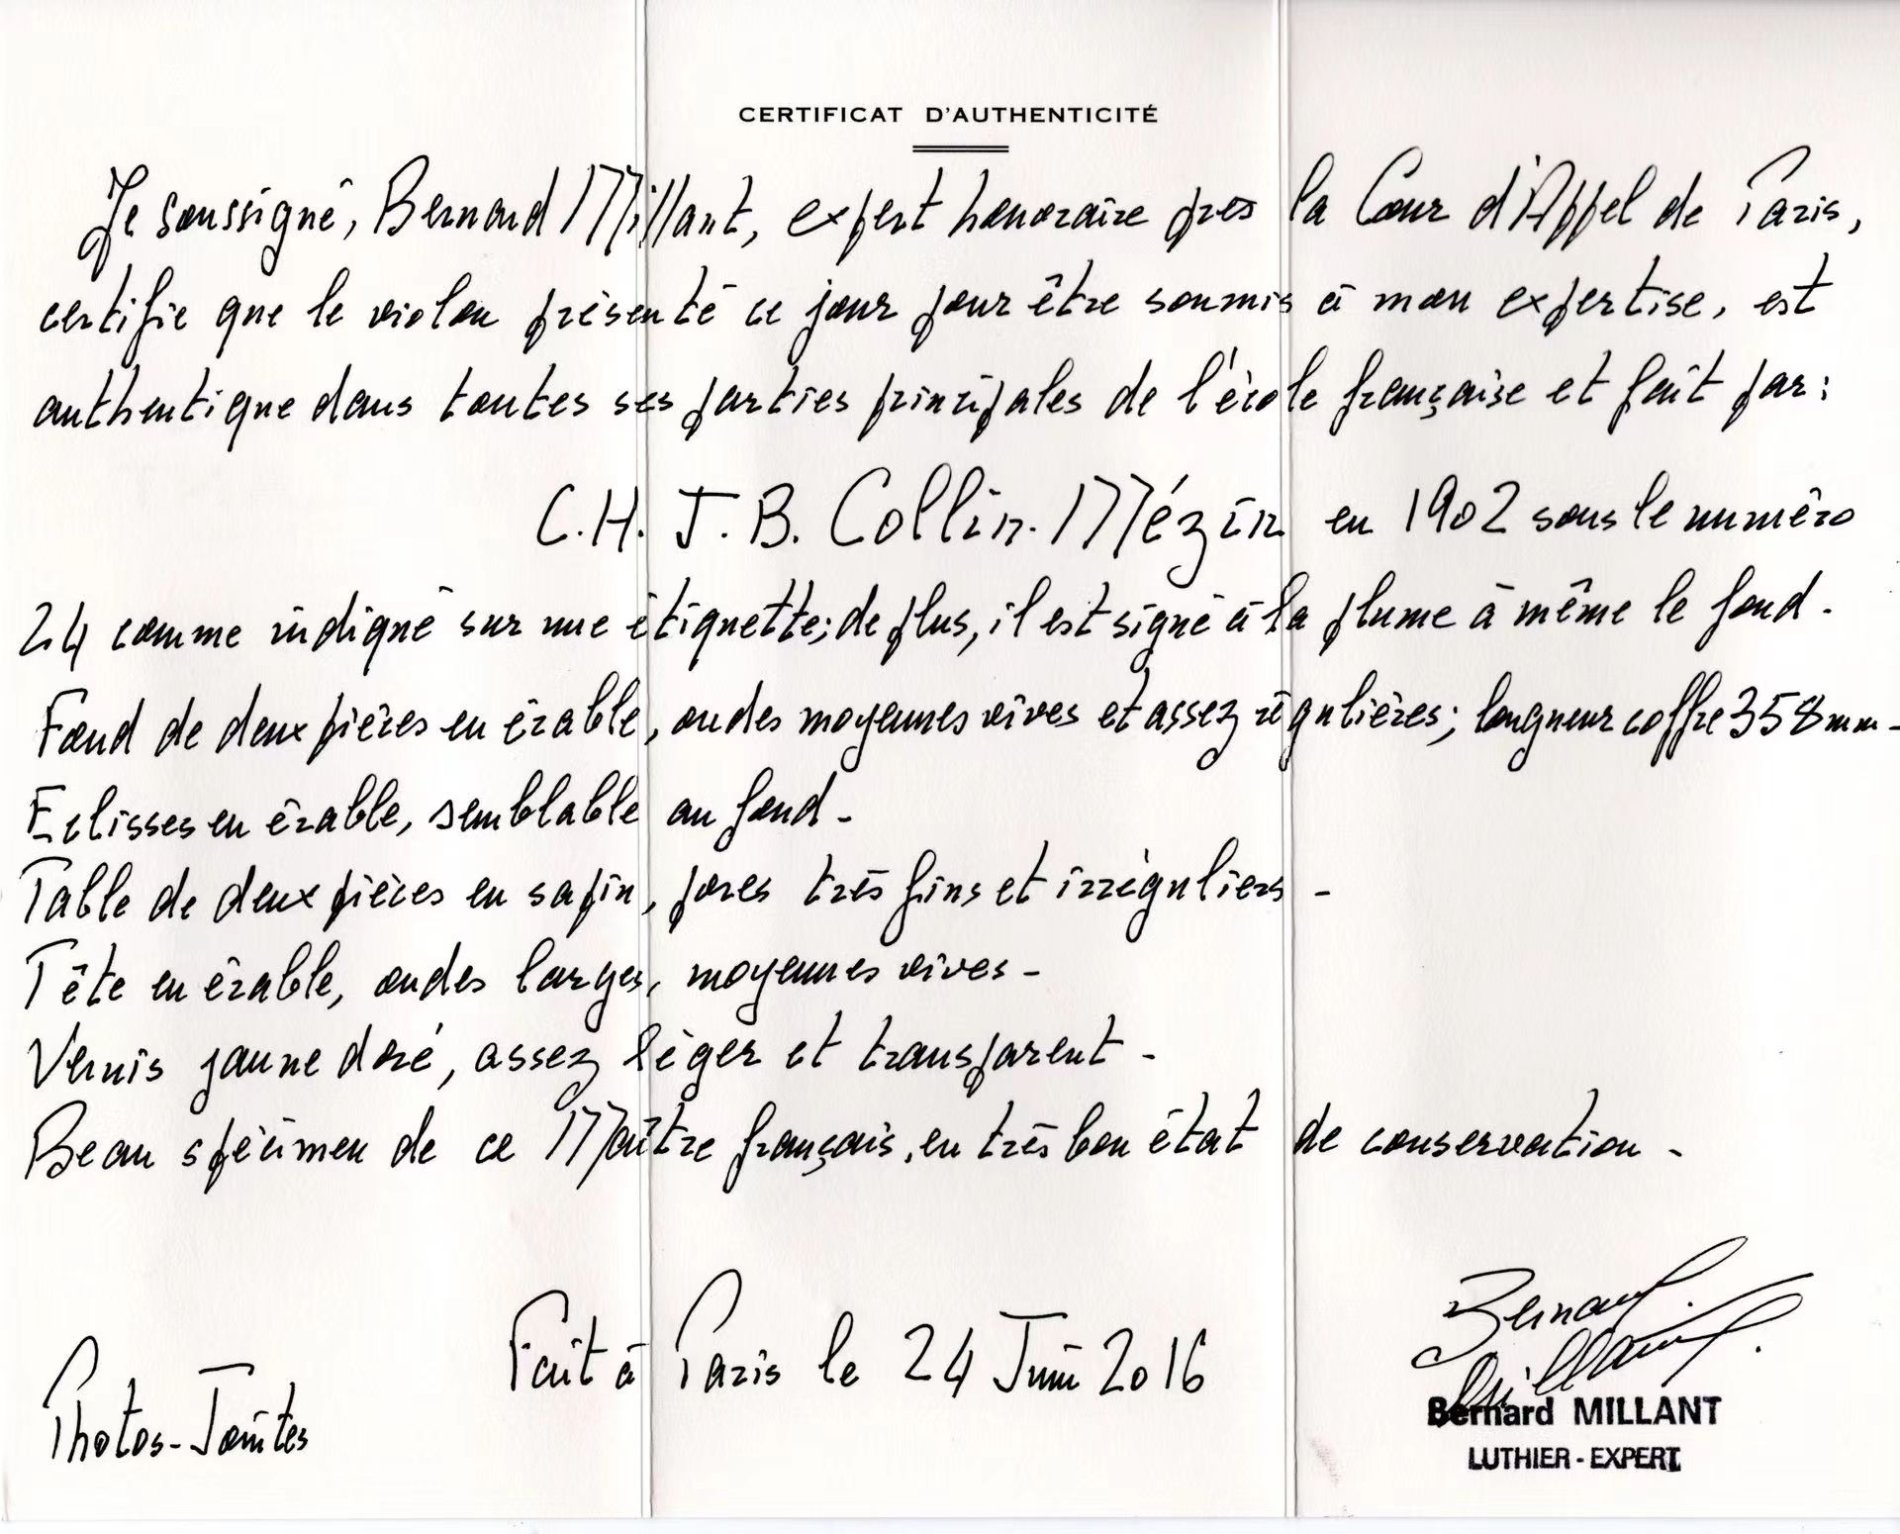 CERTIFICAT D'AUTHENTICITÉ
Je soussigné, Bernard Millant, expert honoraire près la Cour d'Appel de Paris,
certifie que le violon présenté ce jour pour être soumis à mon expertise, est
authentique dans toutes ses parties principales de l'école française et fait par :
C.H. J.B. Collin-Mézin en 1902 sous le numéro
24 comme indiqué sur une étiquette; de plus, il est signé à la plume à même le fond.
Fond de deux pièces en érable, ondes moyennes vives et assez régulières; longueur coffre 358 mm -
Eclisses en érable, semblable au fond -
Table de deux pièces en sapin, pores très fins et irréguliers -
Tête en érable, ondes larges, moyennes vives -
Vernis jaune doré, assez léger et transparent -
Beau spécimen de ce Maître français, en très bon état de conservation -
Fait à Paris le 24 Juin 2016
Photos-Jointes
Bernard Millant
Bernard MILLANT
LUTHIER - EXPERT